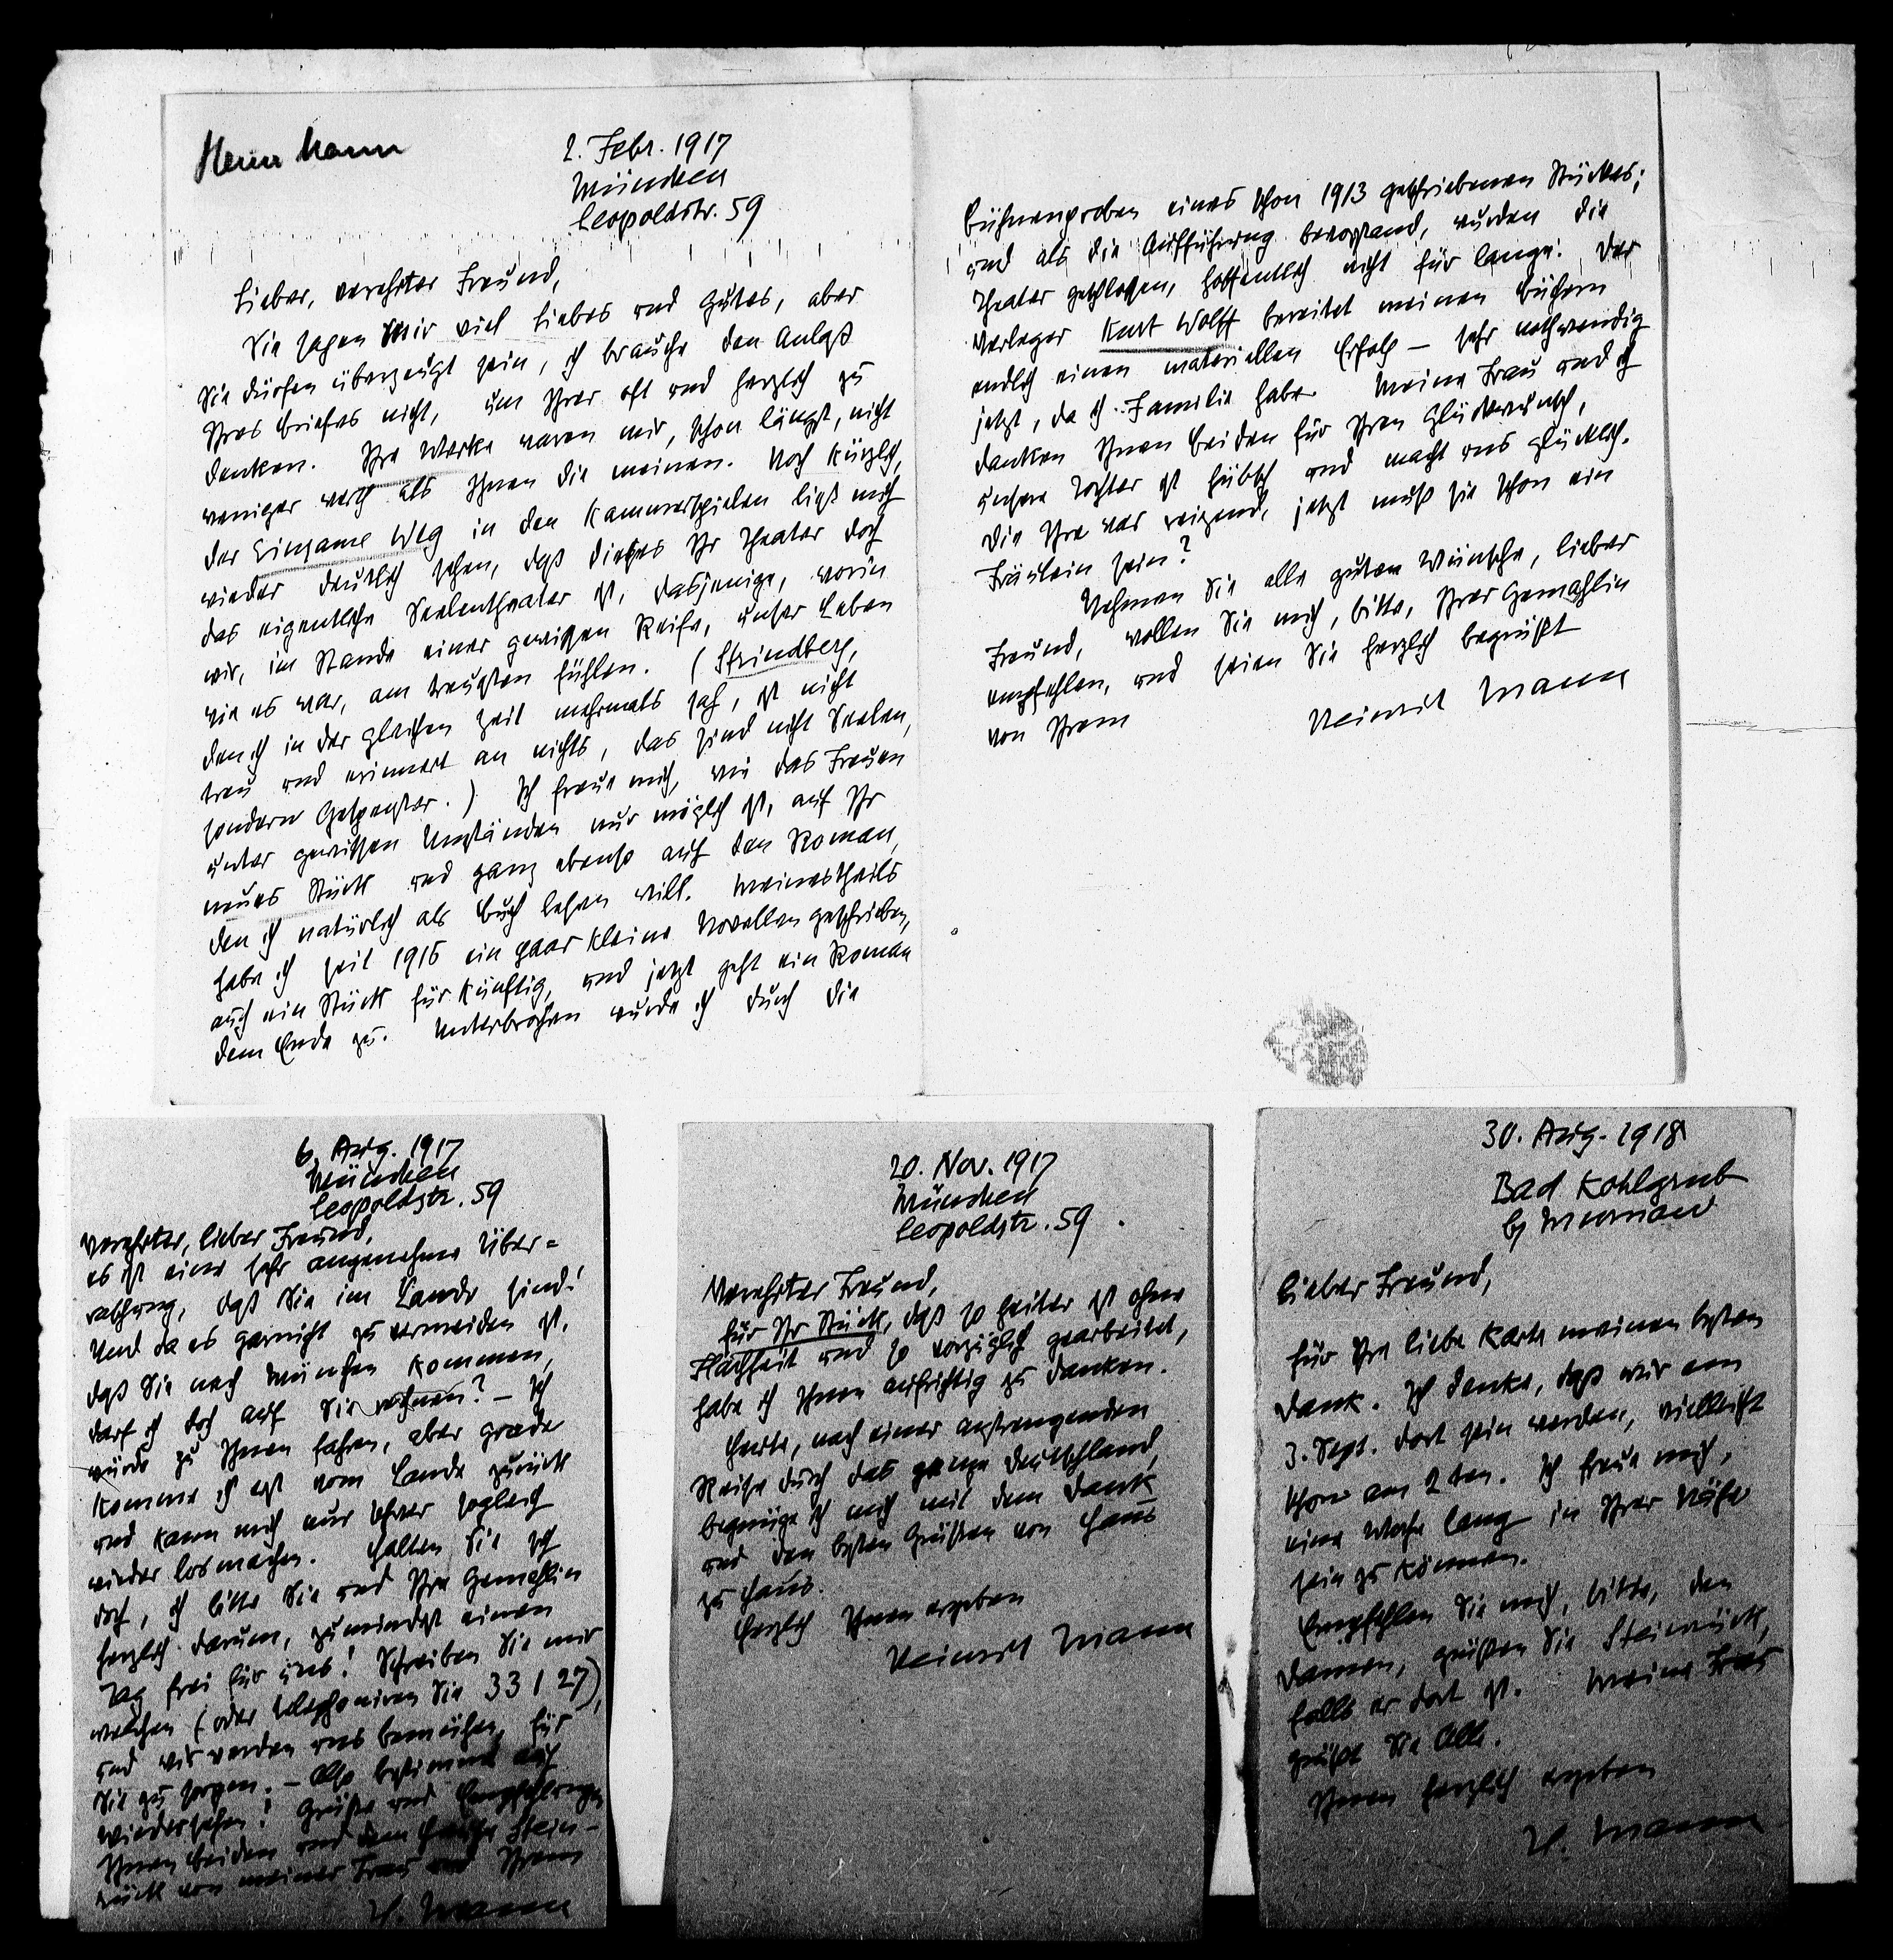 Heinr Mann
2. Febr. 1917
München
Leopoldstr. 59
Lieber, verehrter Freund,
Sie sagen mir viel Liebes und Gutes, aber
Sie dürfen überzeugt sein, ich brauche den Anlaß
Ihres Briefes nicht, um Ihrer oft und herzlich zu
denken. Ihre Werke waren mir, schon längst, nicht
weniger werth als Ihnen die meinen. Noch kürzlich,
der Einsame Weg in den Kammerspielen ließ mich
wieder deutlich sehen, daß dieses Ihr Theater doch
das eigentliche Seelentheater ist, dasjenige, worin
wir, im Stande einer gewissen Reife, unser Leben
wie es war, am treusten fühlen. (Strindberg,
den ich in der gleichen Zeit mehrmals sah, ist nicht
treu und erinnert an nichts, das sind nicht Seelen,
sondern Gespenster.) Ich freue mich, wie das Freuen
unter gewissen Umständen nur möglich ist, auf Ihr
neues Stück und ganz ebenso auf den Roman,
den ich natürlich als Buch lesen will. Meinestheils
habe ich seit 1915 ein paar kleine Novellen geschrieben,
auch ein Stück für künftig, und jetzt geht ein Roman
dem Ende zu. Unterbrochen wurde ich durch die
Bühnenproben eines schon 1913 geschriebenen Stückes;
und als die Aufführung bevorstand, wurden die
Theater geschlossen, hoffentlich nicht für lange. Der
Verleger Kurt Wolff bereitet meinen Büchern
endlich einen materiellen Erfolg – sehr nothwendig
jetzt, da ich Familie habe. Meine Frau und ich
danken Ihnen Beiden für Ihren Glückwunsch,
unsere Tochter ist hübsch und macht uns glücklich.
Die Ihre war reizend, jetzt muß sie schon ein
Fräulein sein?
Nehmen Sie alle guten Wünsche, lieber
Freund, wollen Sie mich, bitte, Ihrer Gemahlin
empfehlen, und seien Sie herzlich begrüßt
von Ihrem
Heinrich Mann
6. Aug. 1917
München
Leopoldstr. 59
Verehrter, lieber Freund,
es ist eine sehr angenehme Über=
raschung, daß Sie im Lande sind!
Und da es garnicht zu vermeiden ist,
daß Sie nach München kommen,
darf ich doch auf Sie rechnen? – Ich
würde zu Ihnen fahren, aber grade
komme ich erst vom Lande zurück
und kann mich nur schwer sogleich
wieder losmachen. Halten Sie sich
doch, ich bitte Sie und Ihre Gemahlin
herzlich darum, zumindest einen
Tag frei für uns! Schreiben Sie mir
welchen (oder telephoniren Sie 33127),
und wir werden uns bemühen, für
Sie zu sorgen. – Also bestimmt auf
Wiedersehen! Grüße und Empfehlungen
Ihnen beiden und dem Hause Stein-
rück von meiner Frau und Ihrem
H. Mann
20. Nov. 1917
München
Leopoldstr. 59.
Verehrter Freund,
für Ihr Stück, daß so heiter ist ohne
Flachheit und so vorzüglich gearbeitet,
habe ich Ihnen aufrichtig zu danken.
Heute, nach einer anstrengenden
Reise durch das ganze Deutschland,
begnüge ich mich mit dem Dank
und den besten Grüßen von Haus
zu Haus.
Herzlich Ihnen ergeben
Heinrich Mann
30. Aug. 1918
Bad Kohlgrub
b/ Murnau
Lieber Freund,
für Ihre liebe Karte meinen besten
Dank. Ich denke, daß wir am
3. Sept. dort sein werden, vielleicht
schon am 2ten. Ich freue mich,
eine Woche lang in Ihrer Nähe
sein zu können.
Empfehlen Sie mich, bitte, den
Damen, grüßen Sie Steinrück,
falls er dort ist. Meine Frau
grüßt Sie Alle.
Ihnen herzlich ergeben
H. Mann